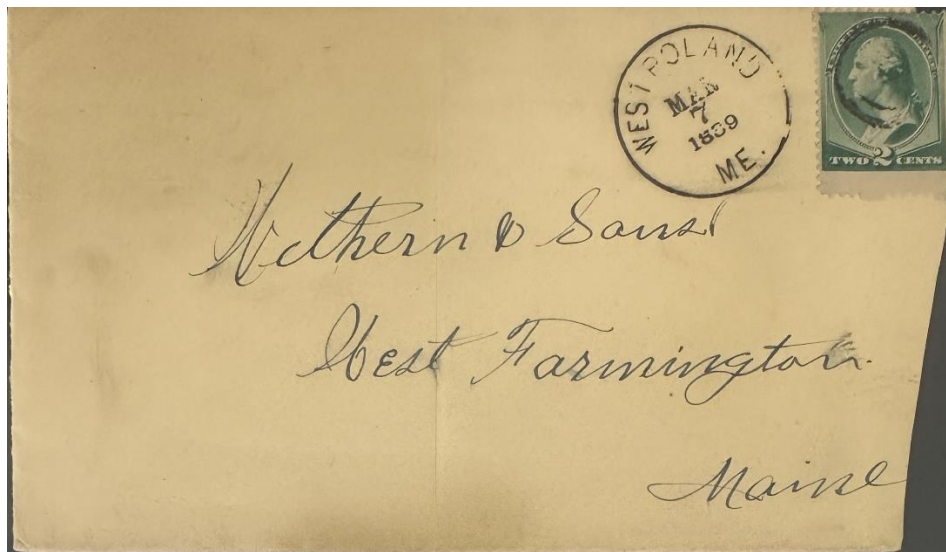 WEST POLAND
MAR
7
1889
ME.
TWO 2 CENTS
Wethern & Sons
West Farmington
Maine